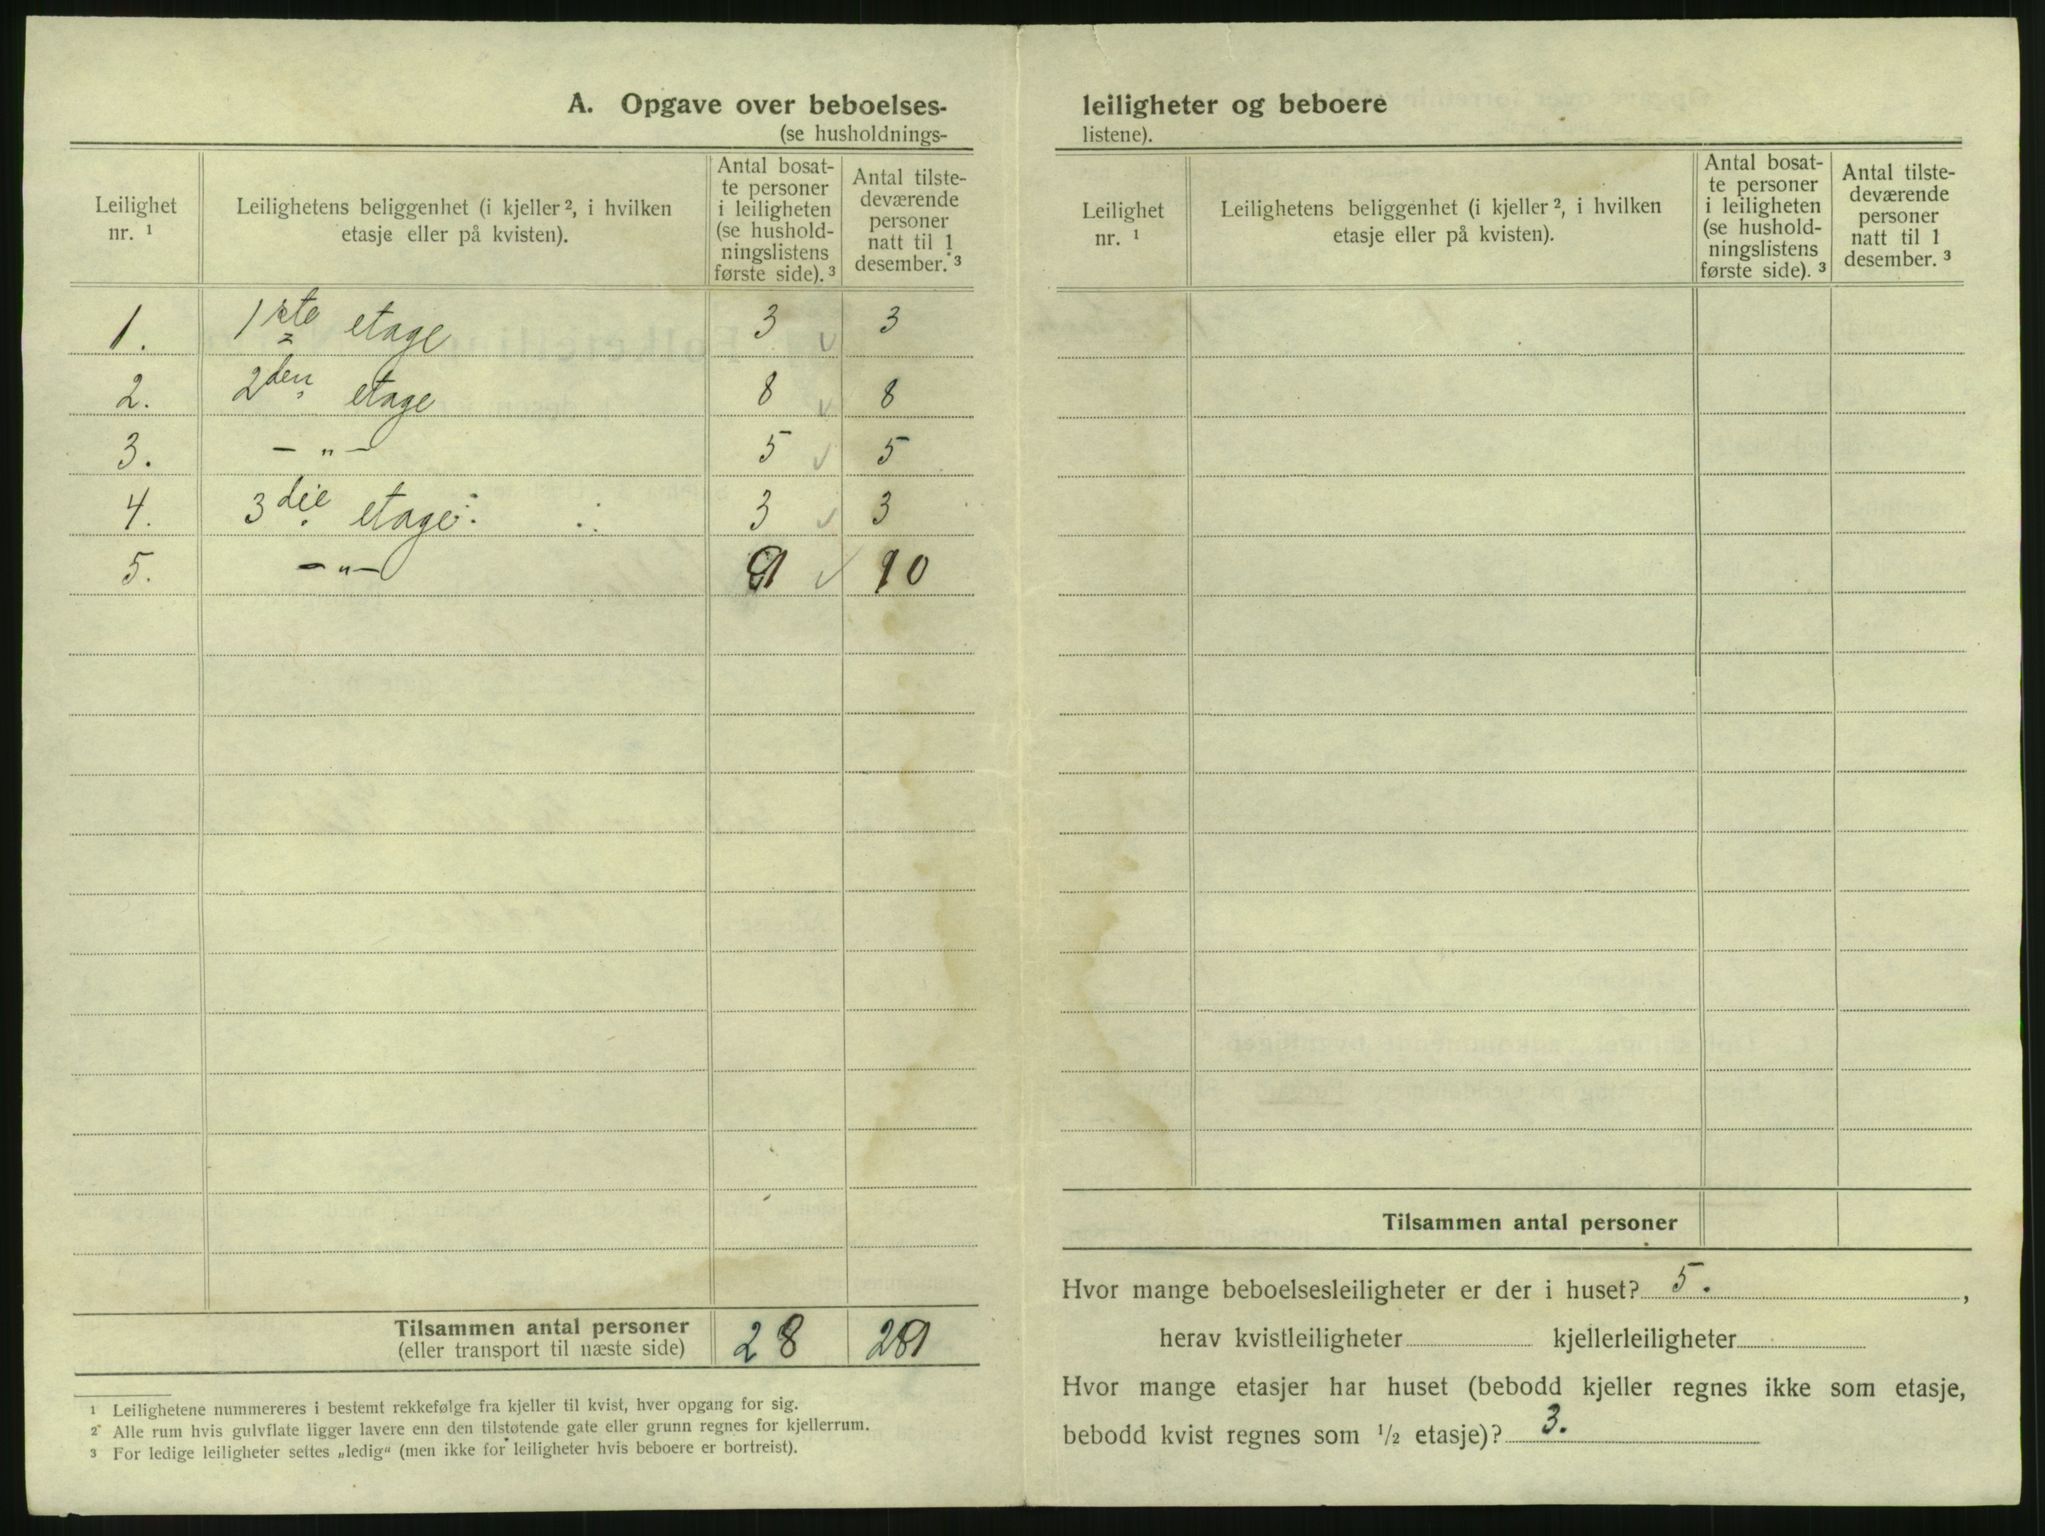 A. Opgave over beboelses-
(se husholdnings-
Leilighet nr. ¹
Leilighetens beliggenhet (i kjeller ², i hvilken etasje eller på kvisten).
Antal bosat-
te personer
i leiligheten
(se hushold-
ningslistens
første side). ³
Antal tilste-
deværende
personer
natt til 1
desember. ³
1. 1ste etage 3 v 3
2. 2den etage 8 v 8
3. — „ — 5 v 5
4. 3die etage. 3 v 3
5. — „ — 9 v 10
Tilsammen antal personer 28
(eller transport til næste side)
¹ Leilighetene nummereres i bestemt rekkefølge fra kjeller til kvist, hver opgang for sig.
² Alle rum hvis gulvflate ligger lavere enn den tilstøtende gate eller grunn regnes for kjellerrum.
³ For ledige leiligheter settes „ledig“ (men ikke for leiligheter hvis beboere er bortreist).
leiligheter og beboere
listene).
Leilighet nr. ¹
Leilighetens beliggenhet (i kjeller ², i hvilken etasje eller på kvisten).
Antal bosat-
te personer
i leiligheten
(se hushold-
ningslistens
første side). ³
Antal tilste-
deværende
personer
natt til 1
desember. ³
Tilsammen antal personer
Hvor mange beboelsesleiligheter er der i huset? 5. ,
herav kvistleiligheter kjellerleiligheter
Hvor mange etasjer har huset (bebodd kjeller regnes ikke som etasje,
bebodd kvist regnes som ½ etasje)? 3.